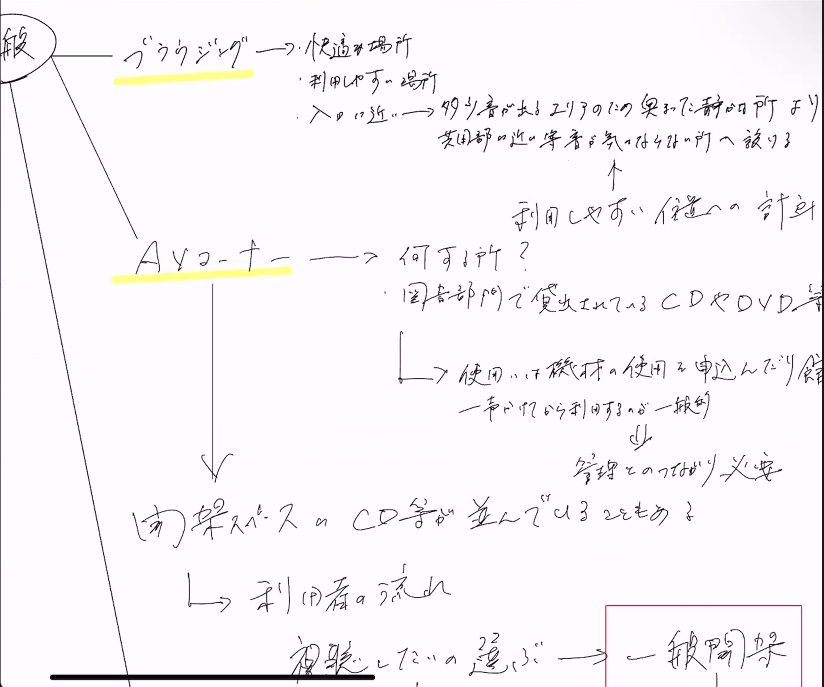 般
ブラウジング → ・快適な場所
・利用しやすい場所
・入口に近い → 多少音が出るエリアのため奥まった静かな所より
共用部に近い 音が気にならない所へ設ける
↑
利用しやすい位置への計画
AVコーナー → 何する所?
・図書部門で貸出されているCDやDVD等
→ 使用には機材の使用を申込んだり館
一声かけてから利用するのが一般的
⇓
管理とのつながり必要
開架スペースにCD等が並んでいることもある
→ 利用者の流れ
視聴したいの選ぶ → 一般開架